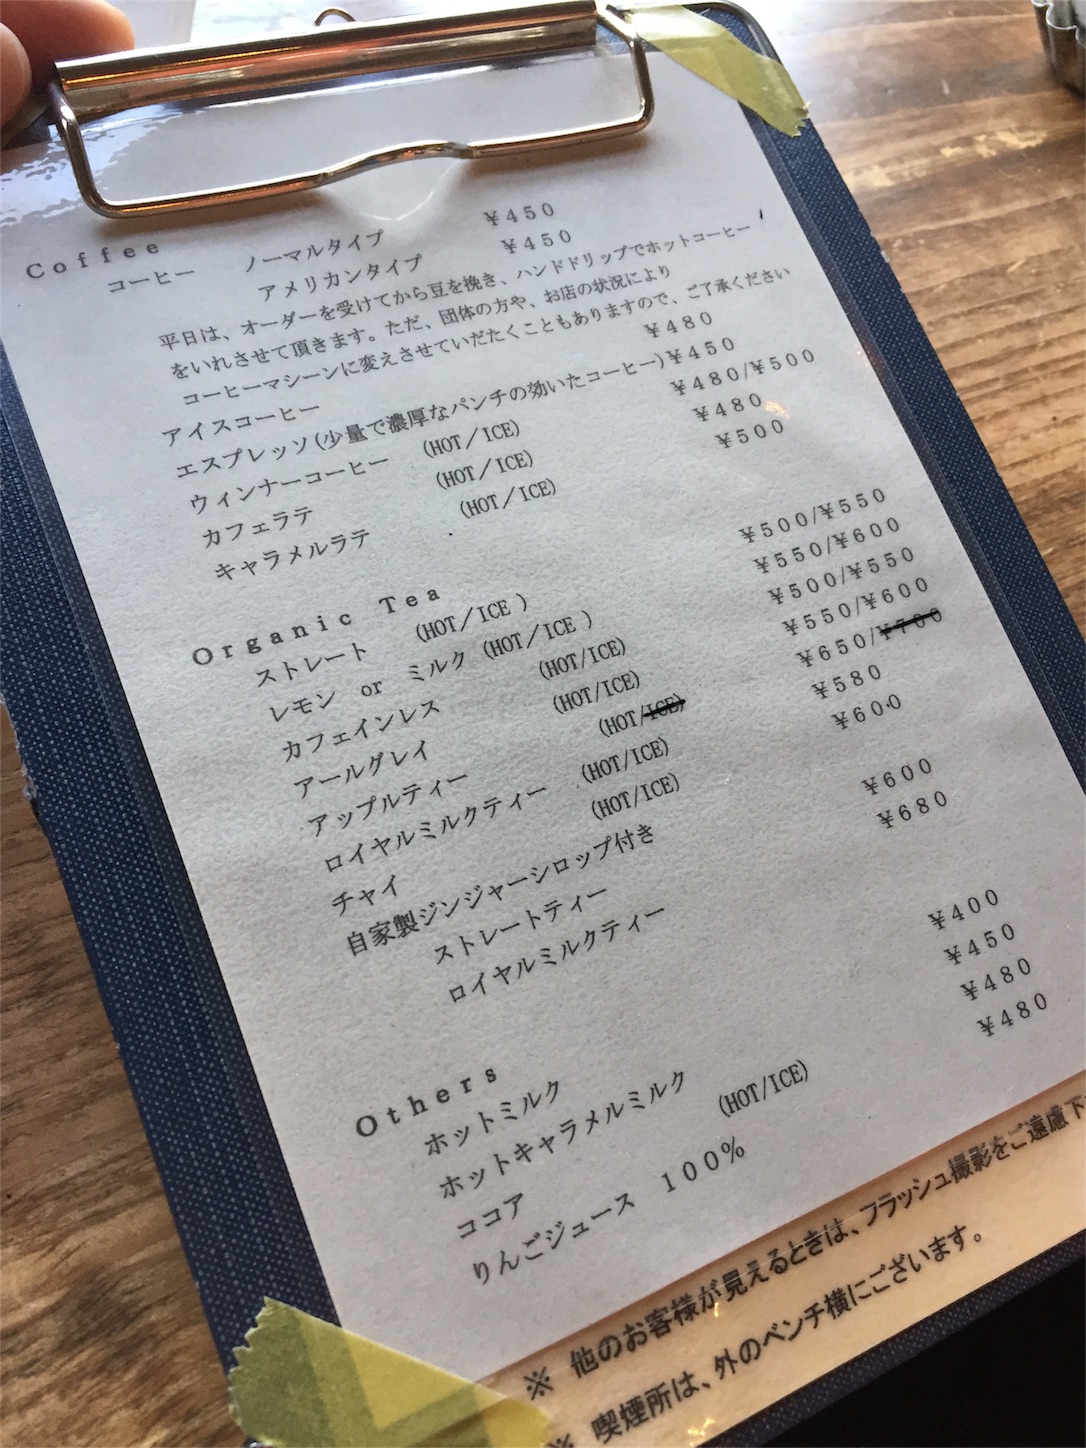 Coffee
コーヒー ノーマルタイプ ¥450
アメリカンタイプ ¥450
平日は、オーダーを受けてから豆を挽き、ハンドドリップでホットコーヒー
をいれさせて頂きます。ただ、団体の方や、お店の状況により
コーヒーマシーンに変えさせていだたくこともありますので、ご了承ください
アイスコーヒー ¥480
エスプレッソ(少量で濃厚なパンチの効いたコーヒー)¥450
ウィンナーコーヒー (HOT/ICE) ¥480/¥500
カフェラテ (HOT/ICE) ¥480
キャラメルラテ (HOT/ICE) ¥500
Organic Tea
ストレート (HOT/ICE ) ¥500/¥550
レモン or ミルク (HOT/ICE ) ¥550/¥600
カフェインレス (HOT/ICE) ¥500/¥550
アールグレイ (HOT/ICE) ¥550/¥600
アップルティー (HOT/ICE) ¥650/¥700
ロイヤルミルクティー (HOT/ICE) ¥580
チャイ (HOT/ICE) ¥600
自家製ジンジャーシロップ付き
ストレートティー ¥600
ロイヤルミルクティー ¥680
Others
ホットミルク ¥400
ホットキャラメルミルク ¥450
ココア (HOT/ICE) ¥480
りんごジュース 100% ¥480
※ 他のお客様が見えるときは、フラッシュ撮影をご遠慮下
※ 喫煙所は、外のベンチ横にございます。